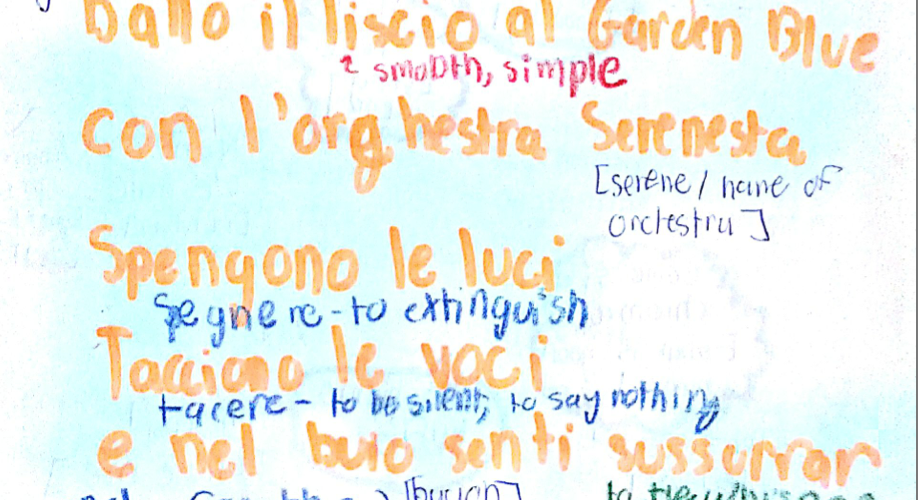 Ballo il liscio al Garden Blue
smooth, simple
con l'orghestra Serenesta
[serene / name of
orchestra]
Spengono le luci
Spegnere - to extinguish
Tacciono le voci
tacere - to be silent, to say nothing
e nel buio senti sussurrar